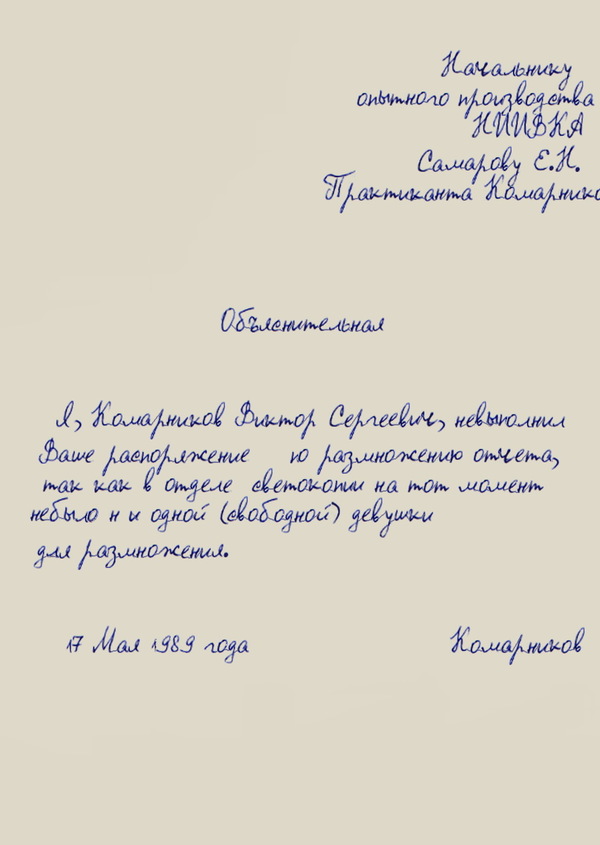 Начальнику
опытного производства
НИИВКА
Самарову Е.Н.
Практиканта Комарнико
Объяснительная
Я, Комарников Виктор Сергеевич, невыполнил
Ваше распоряжение по размножению отчета,
так как в отделе светокопии на тот момент
небыло н и одной (свободной) девушки
для размножения.
17 Мая 1989 года Комарников